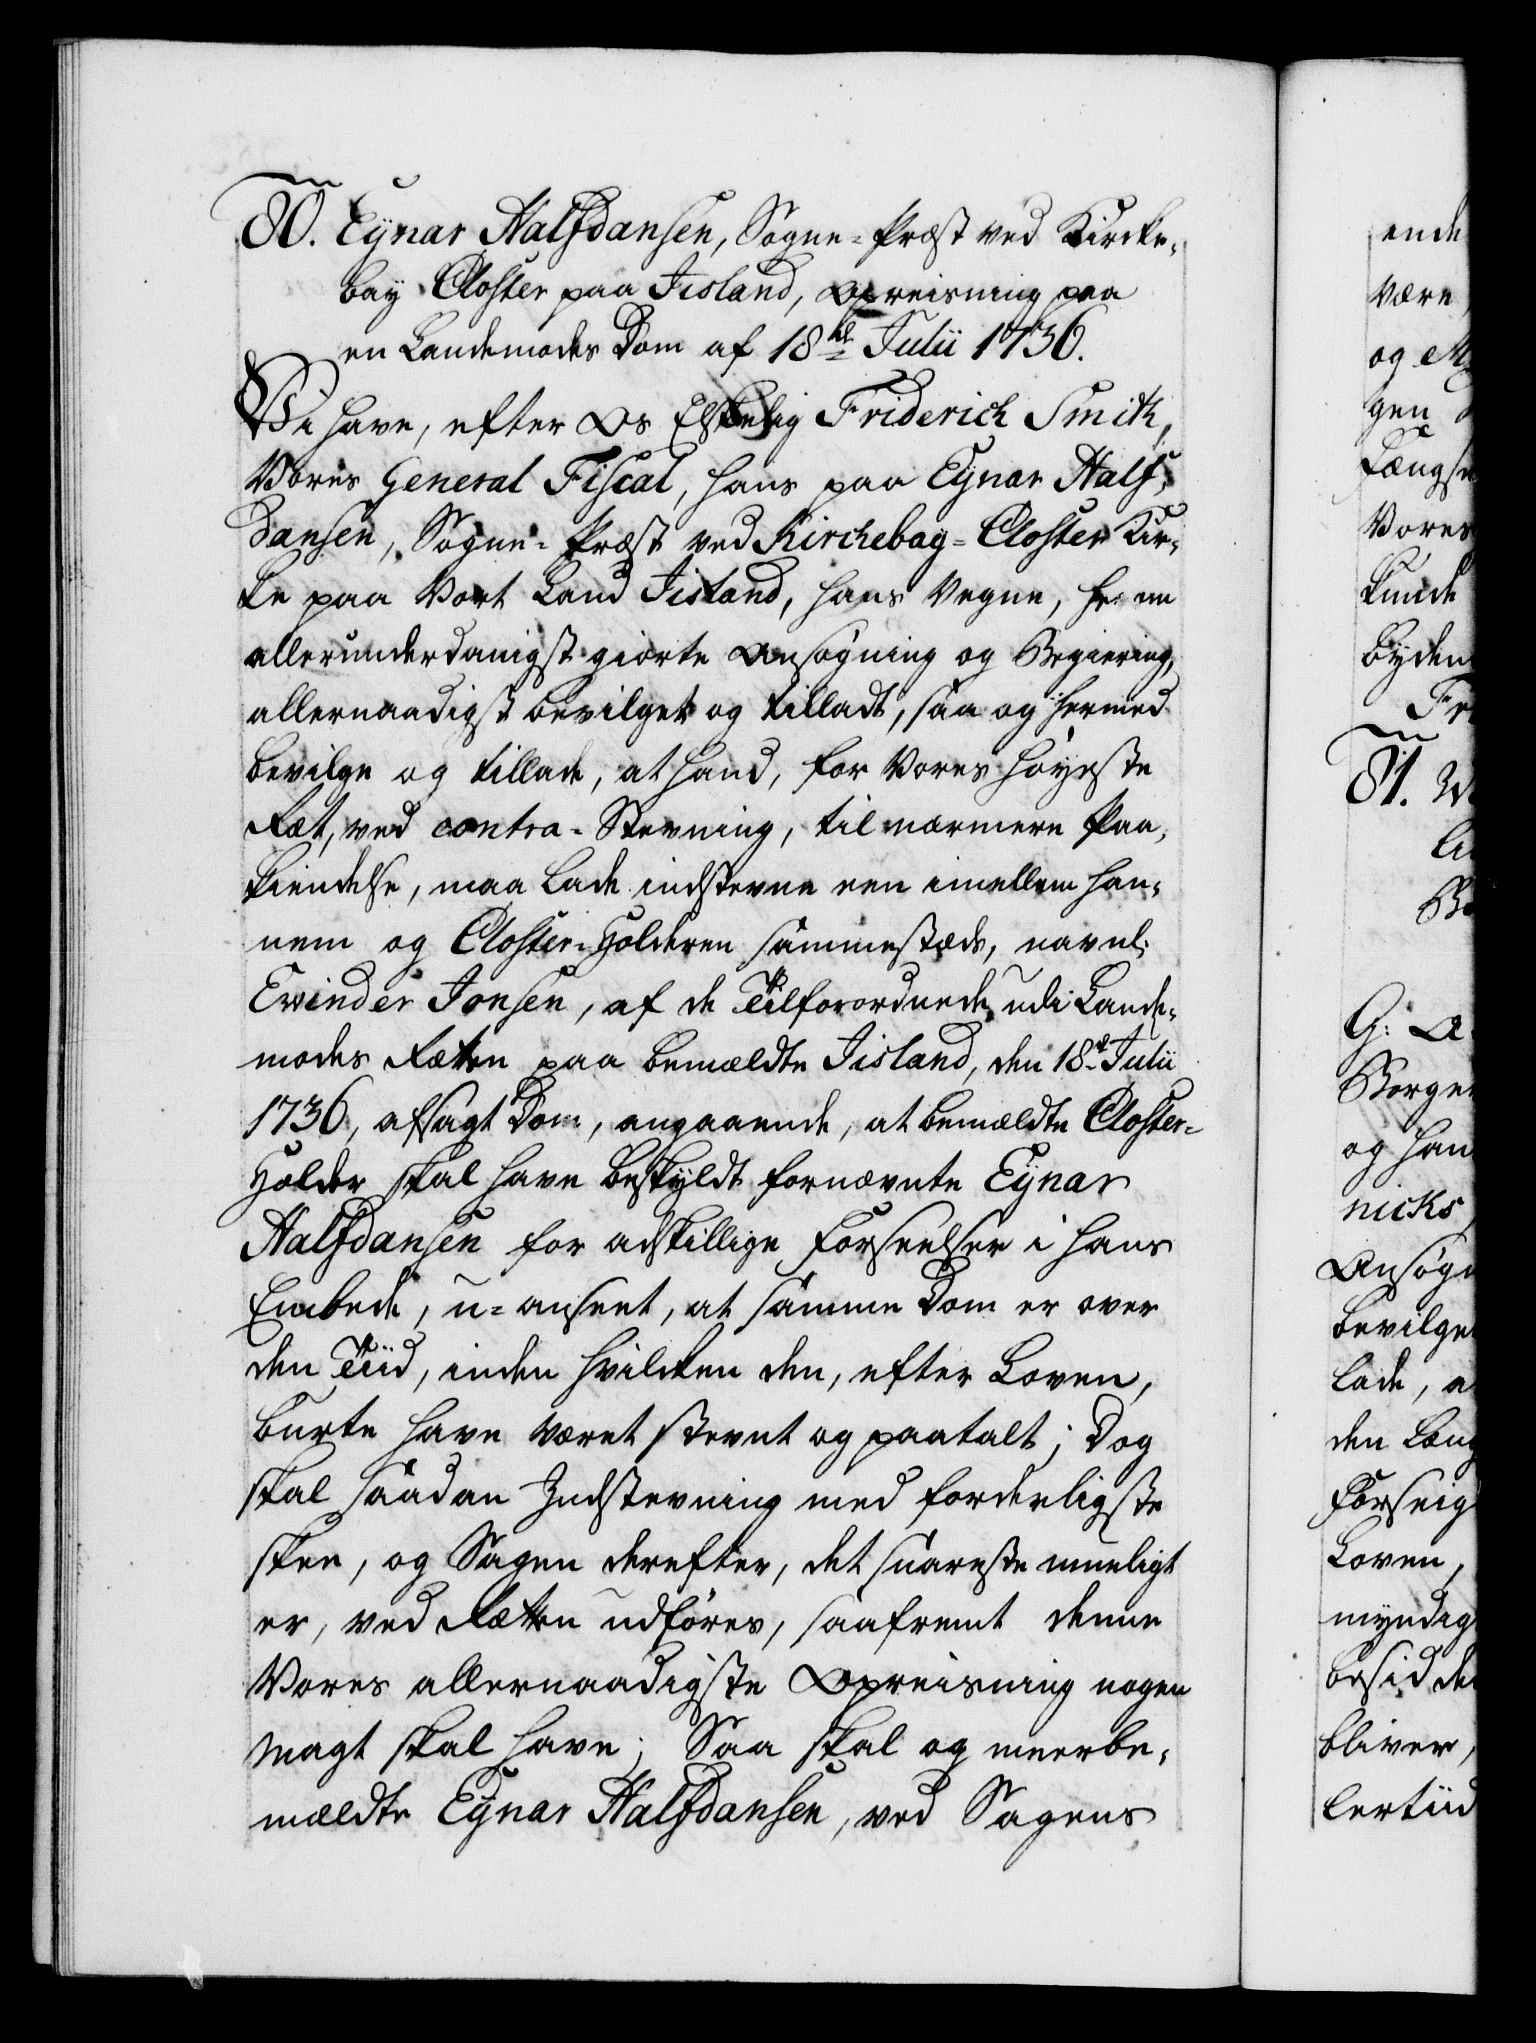 80. Eÿnar Halfdansen, Sogne-Præst ved Kircke-
bay Closter paa Jisland, Opreisning paa
en Landemodes Dom af 18de Julii 1736.
Vi have, efter Os Elskelig Friderich Smith,
Vores General Fiscal, hans paa Eÿnar Half-
dansen, Sogne-Præst ved Kirchebaÿ-Closter Kir-
ke paa Vort Land Jisland, hans Vegne, herom
allerunderdanigst giorte Ansøgning og Begiering,
allernaadigst bevilget og tilladt, saa og hermed
bevilge og tillade, at hand, for Vores Høyeste
Ræt, ved contra-Stevning, til nærmere Paa-
kiendelse, maa lade indstevne een imellem han-
nem og Closter-Holderen sammestæds, navnl:
Ewinder Jonsen, af de Tilforordnede udi Lande-
modes Rætten paa bemældte Jisland, den 18de Julii
1736, afsagt Dom, angaaende, at bemældte Closter-
Holder skal have beskyldt fornævnte Eÿnar
Halfdansen for adskillige Forseelser i hans
Embede, u-anseet, at samme Dom er over
den Tiid, inden hvilcken den, efter Loven,
burte have været stevnt og paatalt; Dog
skal saadan Indstevning med forderligste
skee, og Sagen derefter, det snareste mueligt
er, ved Rætten udføres, saafremt denne
Vores allernaadigste Opreisning nogen
Magt skal have; Saa skal og meerbe-
mældte Eÿnar Halfdansen, ved Sagens
ende
være
og
gen
Længse
Vores
kunde
byden
Fr
81.
G: A
Borger
og han
nicks
Ansøgn
bevilge
lade, a
den Lang
Forseig
Loven,
myndig
besidde
bliver,
lertiid